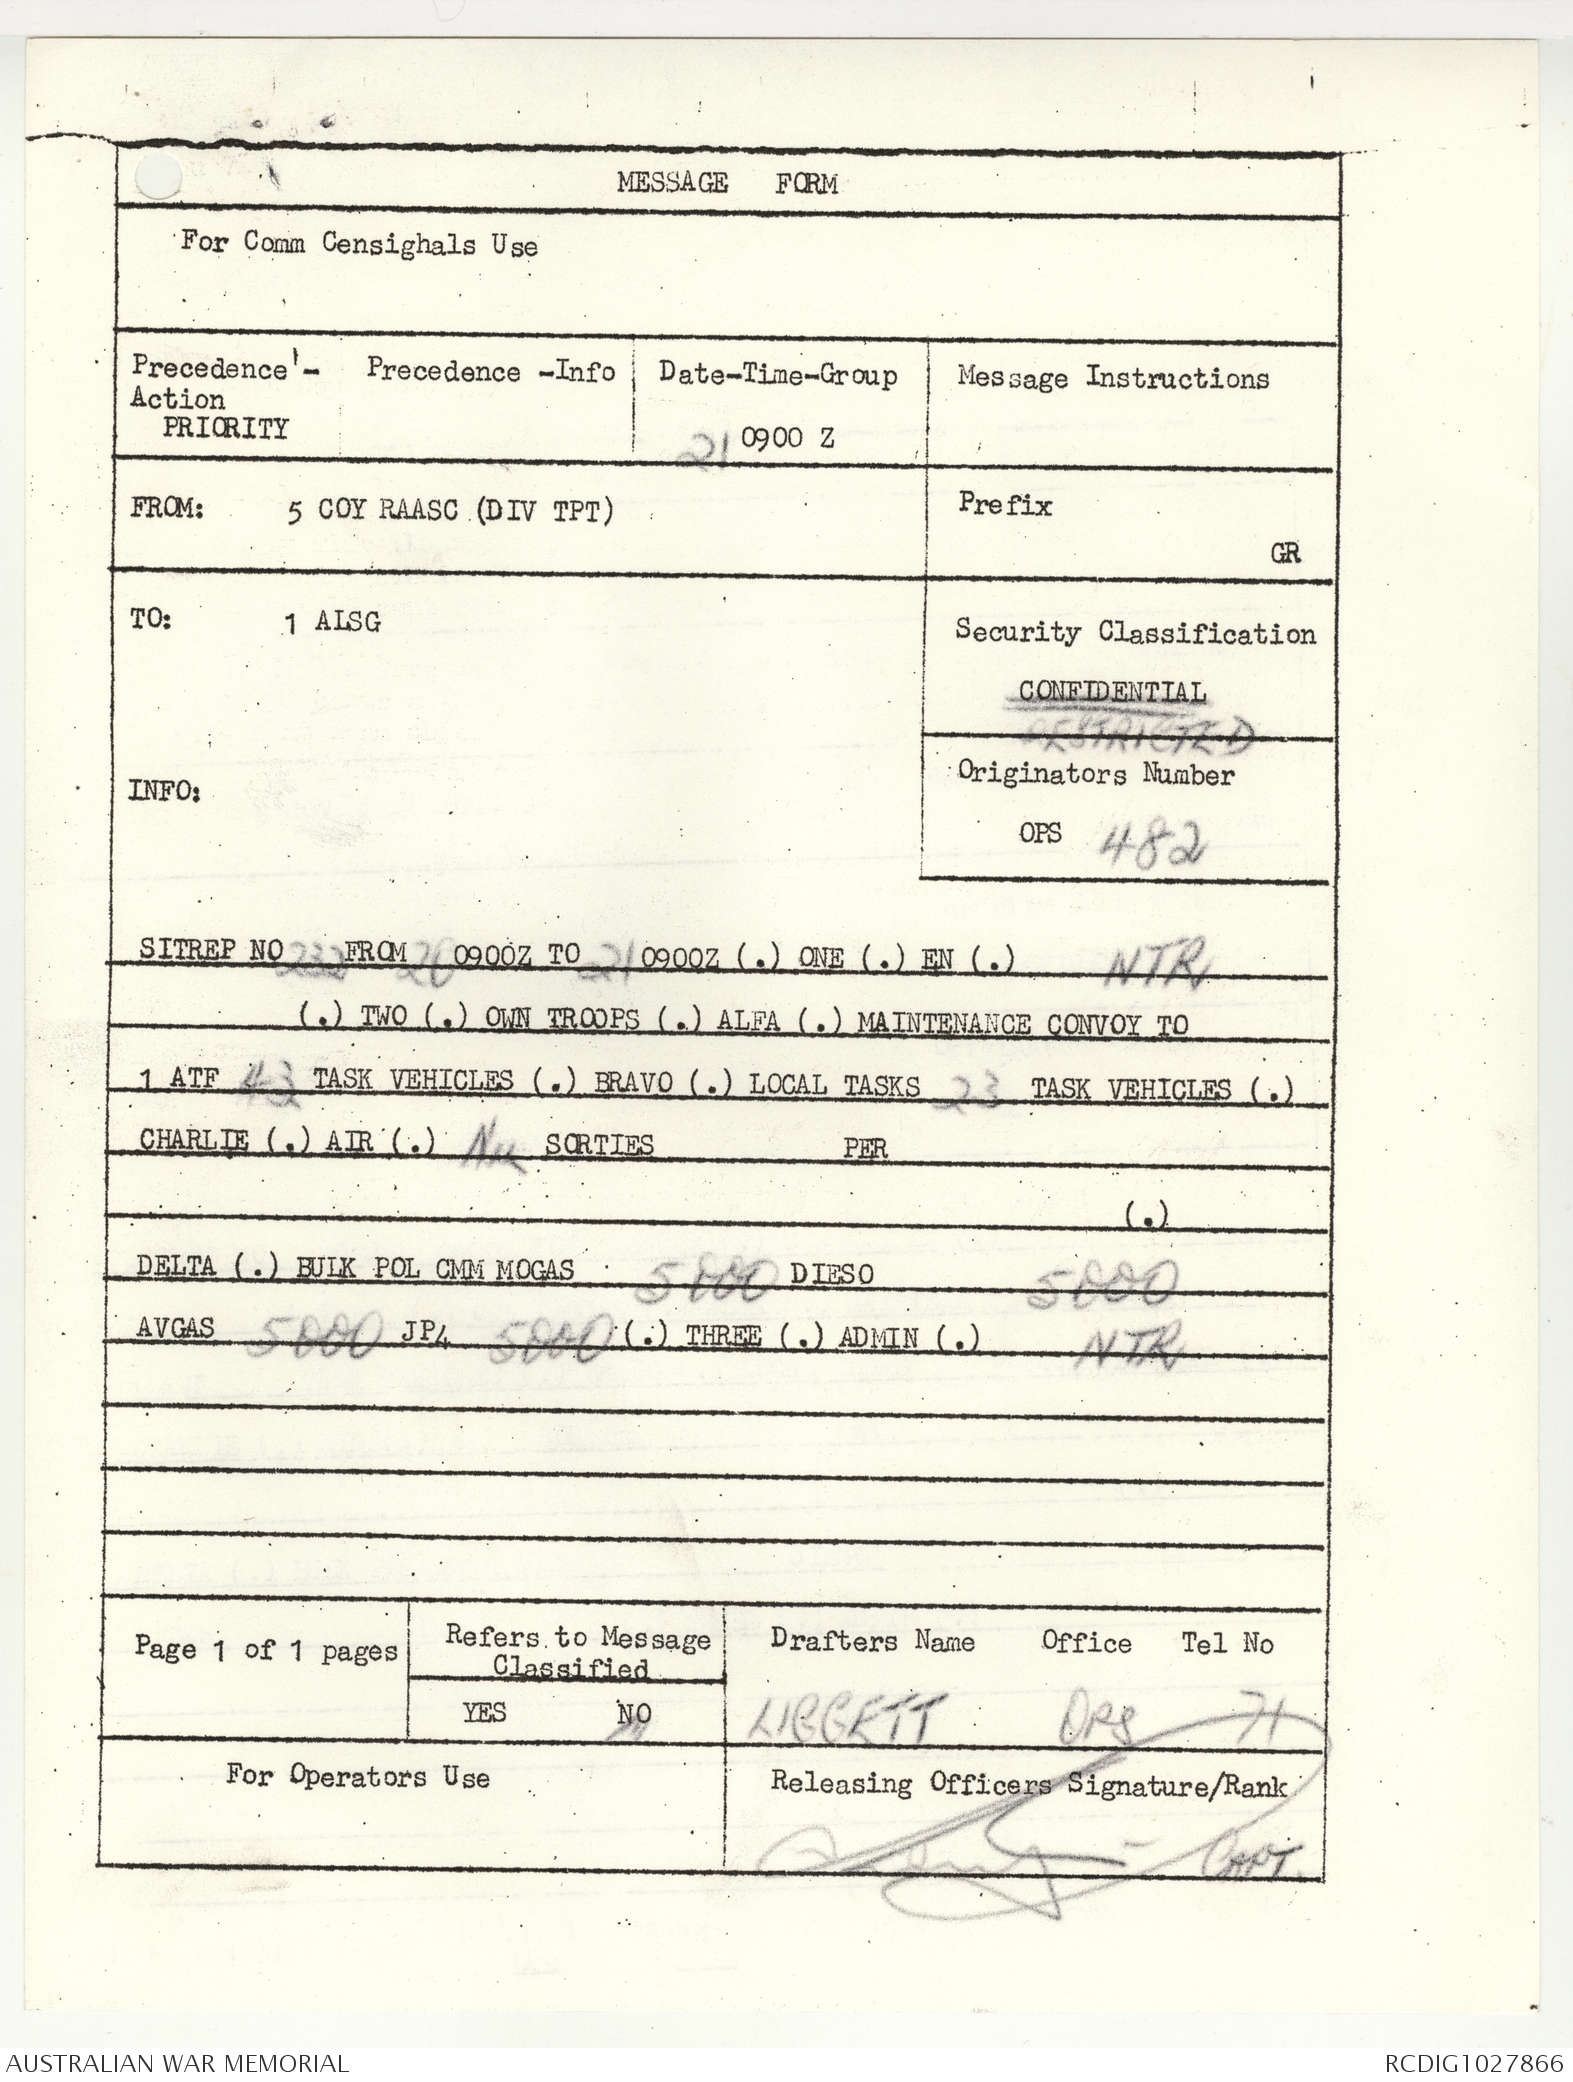 MESSAGE FORM
For Comm Censighals Use
Precedence - Precedence -Info Date-Time-Group Message Instructions
Action
PRIORITY 21 0900 Z
FROM: 5 COY RAASC (DIV TPT) Prefix
GR
TO: 1 ALSG Security Classification
CONFIDENTIAL
RESTRICTED
INFO: Originators Number
OPS 482
SITREP NO 232 FROM 20 0900Z TO 21 0900Z (.) ONE (.) EN (.) NTR
(.) TWO (.) OWN TROOPS (.) ALFA (.) MAINTENANCE CONVOY TO
1 ATF 43 TASK VEHICLES (.) BRAVO (.) LOCAL TASKS 23 TASK VEHICLES (.)
CHARLIE (.) AIR (.) NIL SORTIES PER
(.)
DELTA (.) BULK POL CMM MOGAS 5000 DIESO 5000
AVGAS 5000 JP4 5000 (.) THREE (.) ADMIN (.) NTR
Page 1 of 1 pages Refers to Message Drafters Name Office Tel No
Classified
YES NO LIGGETT OPS 71
For Operators Use Releasing Officers Signature/Rank
CAPT.
AUSTRALIAN WAR MEMORIAL RCDIG1027866